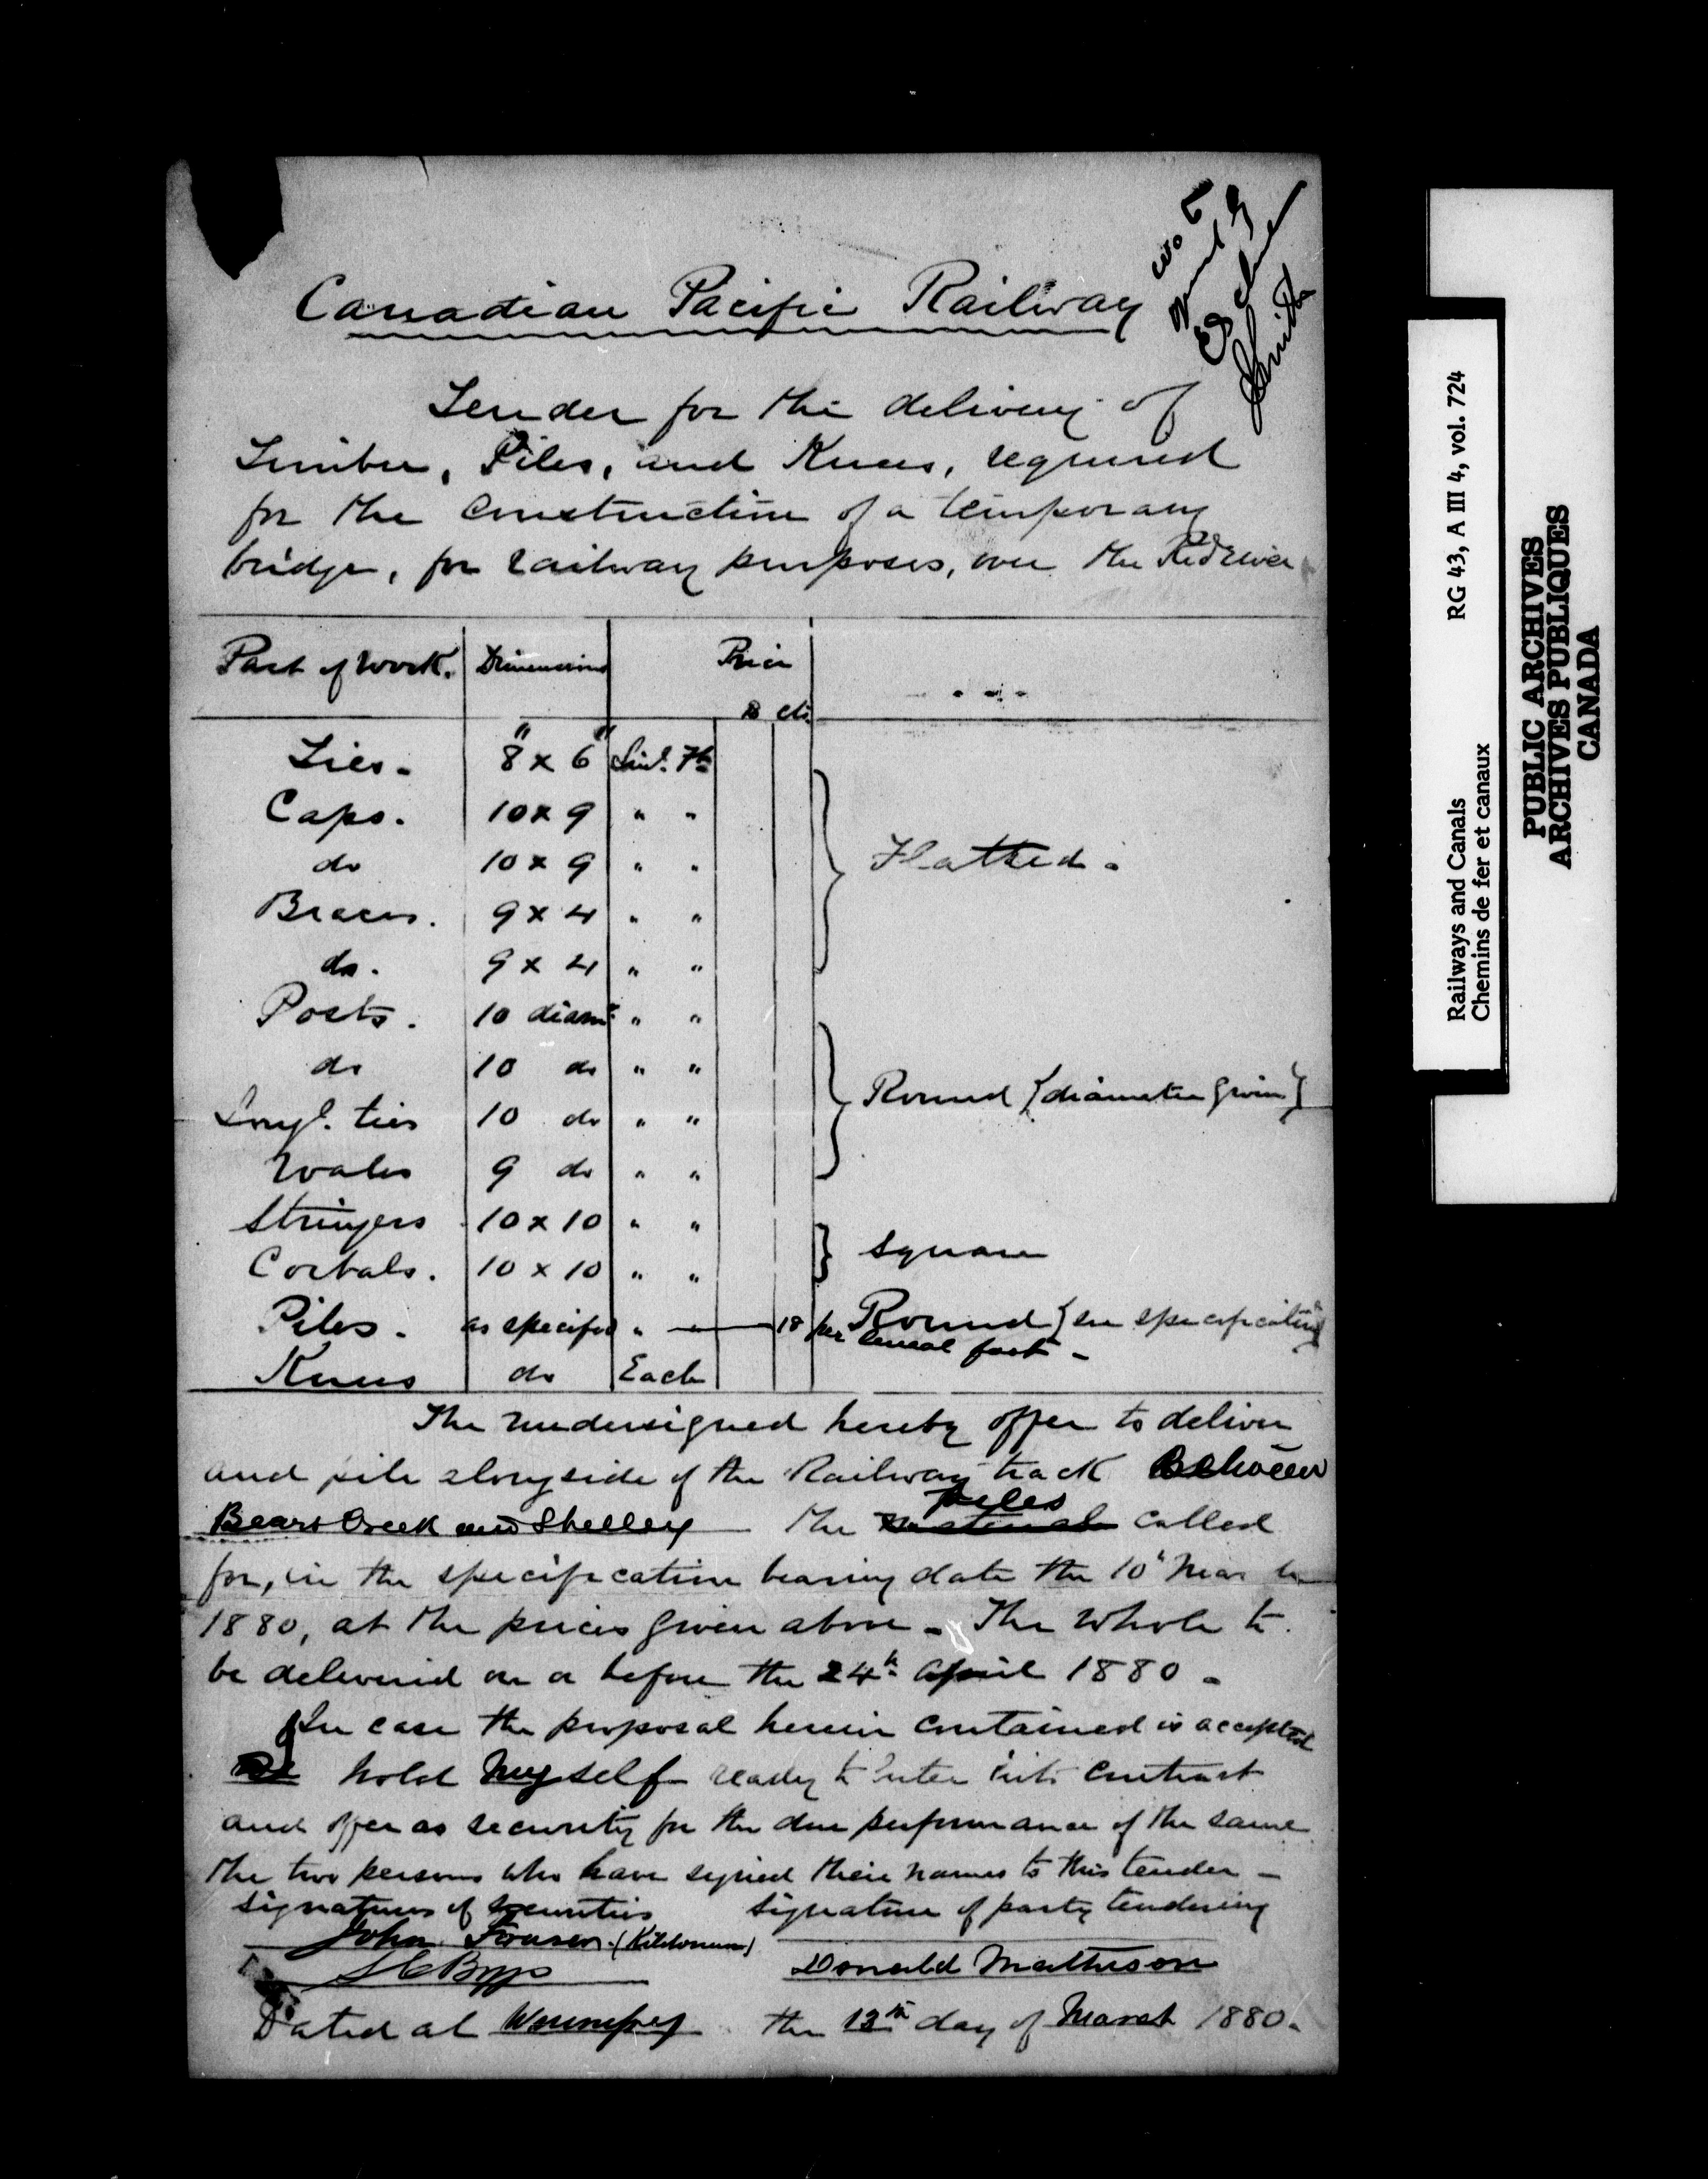 Canadian Pacific Railway
Smith
Tender for the delivery of
Timber, Piles, and Knees, required
for the Construction of a temporary
bridge, for railway purposes, over the Red River
Part of Work. Dimensions Price
$ cts.
Ties. 8" x 6" Linl. Ft.
Caps. 10 x 9 " "
do 10 x 9 " "
Flatted.
Braces. 9 x 4 " "
do. 9 x 4 " "
Posts. 10 diamr " "
do 10 do " "
Longl. ties 10 do " "
Round {diameter given}
Wales 9 do " "
Stringers 10 x 10 " "
Square
Corbals. 10 x 10 " "
Piles. as specified " — 18 per Round {see specification}
lineal foot -
Knees do Each
The undersigned hereby offer to deliver
and pile alongside of the Railway track Between
piles
Bears Creek and Shelley — the materials called
for, in the specification bearing date the 10th March
1880, at the prices given above - The Whole to
be delivered on or before the 24th April 1880 -
In case the proposal herein contained is accepted
I hold Myself ready to enter into contract
and offer as security for the due performance of the same
the two persons who have signed their names to this tender -
Signatures of securities Signature of party tendering
John Fraser. (Kildonan)
Donald Mathieson
Dated at Winnipeg the 13th day of March 1880.
Railways and Canals RG 43, A III 4, vol. 724
Chemins de fer et canaux
PUBLIC ARCHIVES
ARCHIVES PUBLIQUES
CANADA